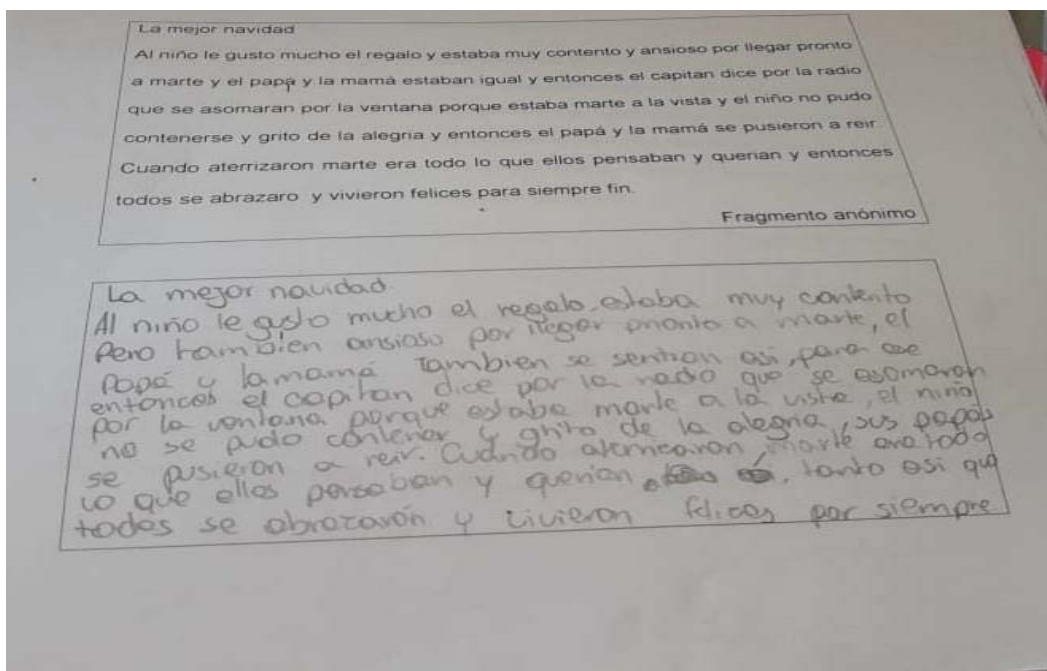 La mejor navidad
Al niño le gusto mucho el regalo y estaba muy contento y ansioso por llegar pronto
a marte y el papá y la mamá estaban igual y entonces el capitan dice por la radio
que se asomaran por la ventana porque estaba marte a la vista y el niño no pudo
contenerse y grito de la alegria y entonces el papá y la mamá se pusieron a reir
Cuando aterrizaron marte era todo lo que ellos pensaban y querian y entonces
todos se abrazaro y vivieron felices para siempre fin.
Fragmento anónimo
La mejor navidad
Al niño le gusto mucho el regalo, estaba muy contento
Pero tambien ansioso por llegar pronto a marte, el
Papá y la mamá Tambien se sentian asi, para ese
entonces el capitan dice por la radio que se asomaran
Por la ventana porque estaba marte a la vista, el niño
no se pudo contener y grito de la alegria, sus papás
se pusieron a reir. Cuando aterricaron, marte era todo
lo que ellos pensaban y querian, tanto asi que
todos se abrazaron y vivieron felices por siempre